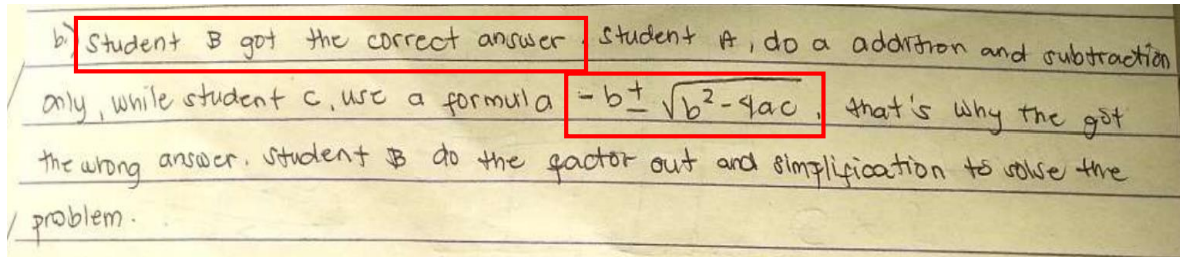 b.) Student B got the correct answer. Student A, do a addition and subtraction
only, while student C, use a formula -b ± √b²-4ac, that's why the got
the wrong answer. Student B do the factor out and simplification to solve the
problem.